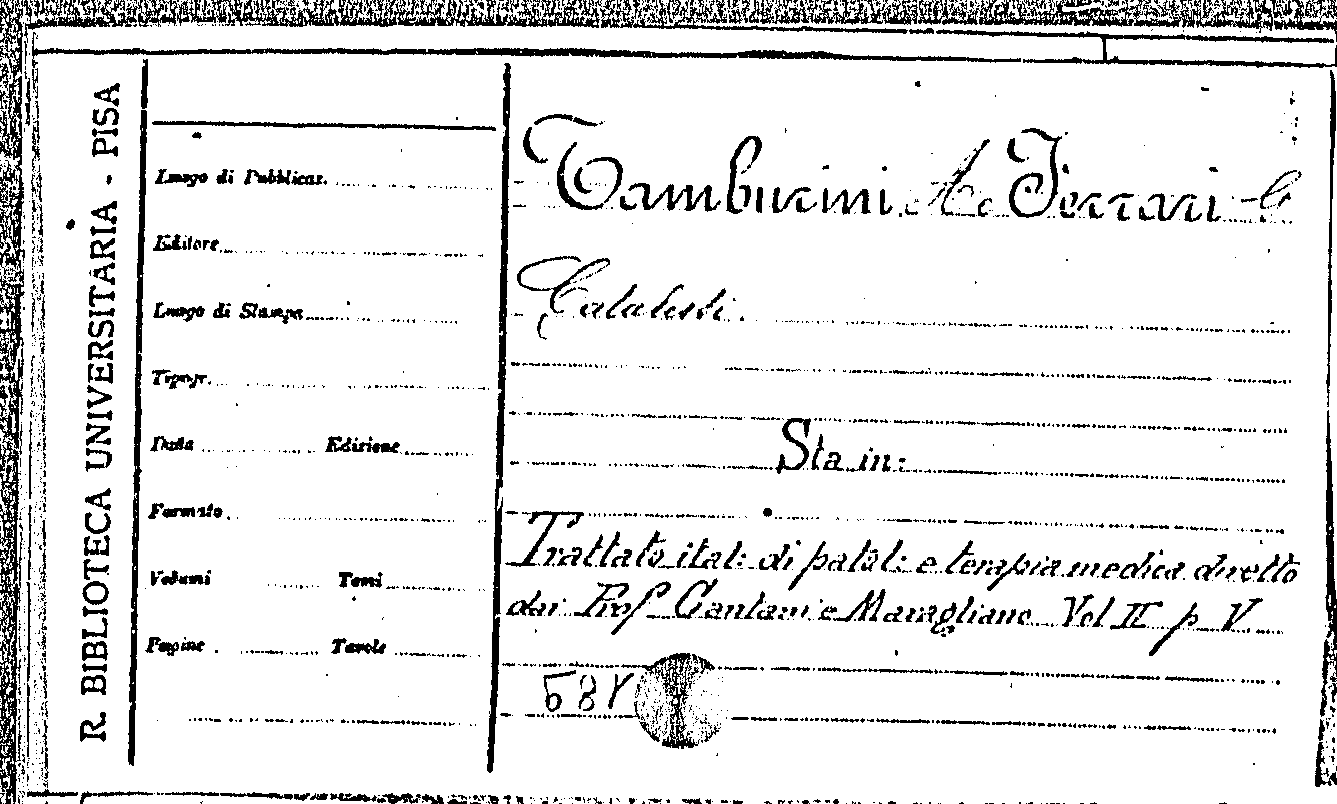 R. BIBLIOTECA UNIVERSITARIA - PISA
Luogo di Pubblicaz.
Editore
Luogo di Stampa
Tipogr.
Data Edizione
Formato
Volumi Tomi
Pagine Tavole
Tamburini A. Ferrari G
Catalessi.
Sta in:
Trattato ital: di patol: e terapia medica diretto
dai Prof Cantani e Maragliano Vol II p V